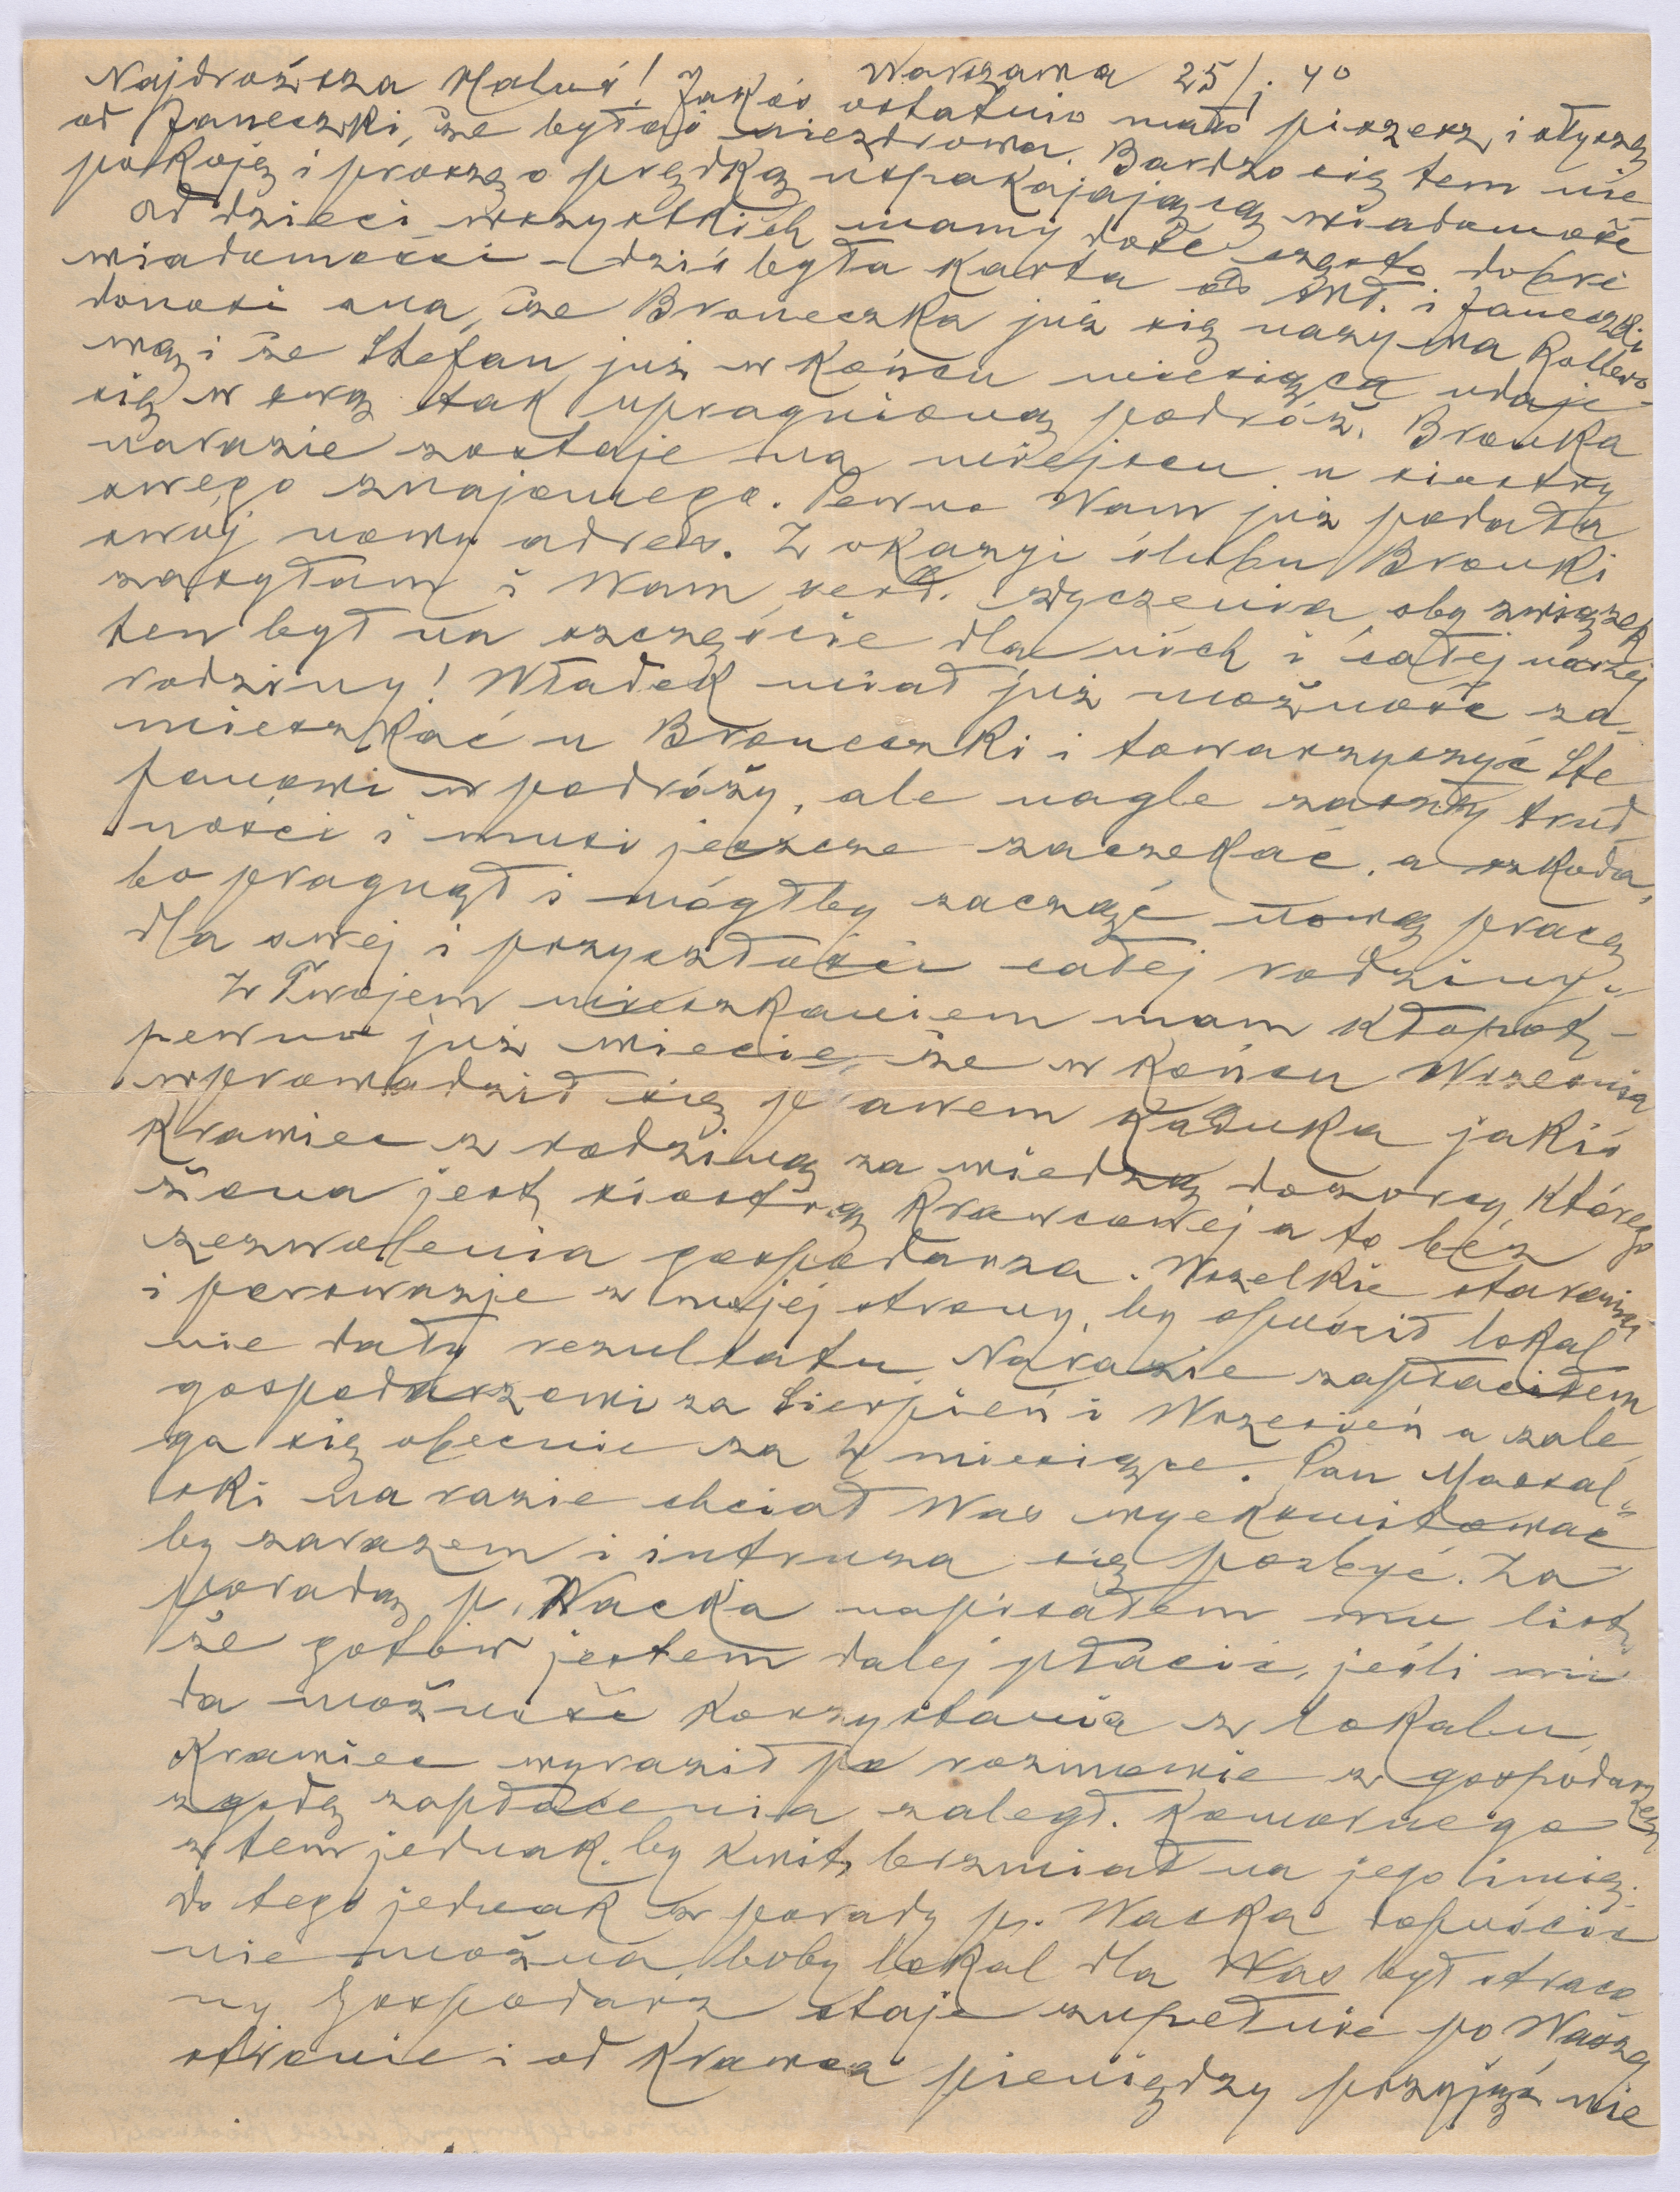 Warszawa 25/I. 40
Najdroższa Maluś! Jakoś ostatnio mało piszesz, i słyszę
od Janeczki, że byłaś niezdrowa. Bardzo się tem nie
pokoję i proszę o prędką uspakajającą wiadomość
Od dzieci wszystkich mamy dość często dobre
wiadomości – dziś była karta od Wł. i Janeczki
donosi ona, że Broneczka już się nazywa
wą i że Stefan już w końcu miesiąca udaje
się w swą tak upragnioną podróż. Bronka
narazie zostaje na miejscu u siostry
swego znajomego. Pewno Wam już podała
swój nowy adres. Z okazyi ślubu Bronki
zasyłam i Wam serd. życzenia, oby związek
ten był na szczęście dla nich i całej naszej
rodziny! Władek miał już możność za-
mieszkać u Broneczki i towarzyszyć Ste
fanowi w podróży, ale nagle zaszły trud
ności i musi jeszcze zaczekać, a szkoda,
bo pragnął i mógłby zacząć nową pracę
dla swej i przyszłości całej rodziny.
Z Twojem mieszkaniem mam kłopot –
pewno już wiecie, że w końcu Września
wprowadził się prawem Kaduka jakiś
Krawiec z rodziną za wiedzą dozorcy którego
żona jest siostrą Krawcowej a to bez
zezwolenia gospodarza. Wszelkie starania
i perswazje z mojej strony, by opuścił lokal
nie dały rezultatu. Narazie zapłaciłem
gospodarzowi za Sierpień i Wrzesień a zale
ga się obecnie za 4 miesiące. Pan
ski na razie chciał Was wyeksmitować
by zarazem i intruza się pozbyć. Za
poradą p. Wacka napisałem mu list,
że gotów jestem dalej płacić, jeśli mi
da możność korzystania z lokalu,
Krawiec wyraził po rozmowie z gospodarzem
zgodę zapłacenia zaległ. Komornego
z tem jednak, by kwit brzmiał na jego imię.
do tego jednak z porady p. Wacka dopuścić
nie można, boby lokal dla Was był straco-
ny Gospodarz staje zupełnie po Waszej
stronie i od Krawca pieniędzy przyjąć nie